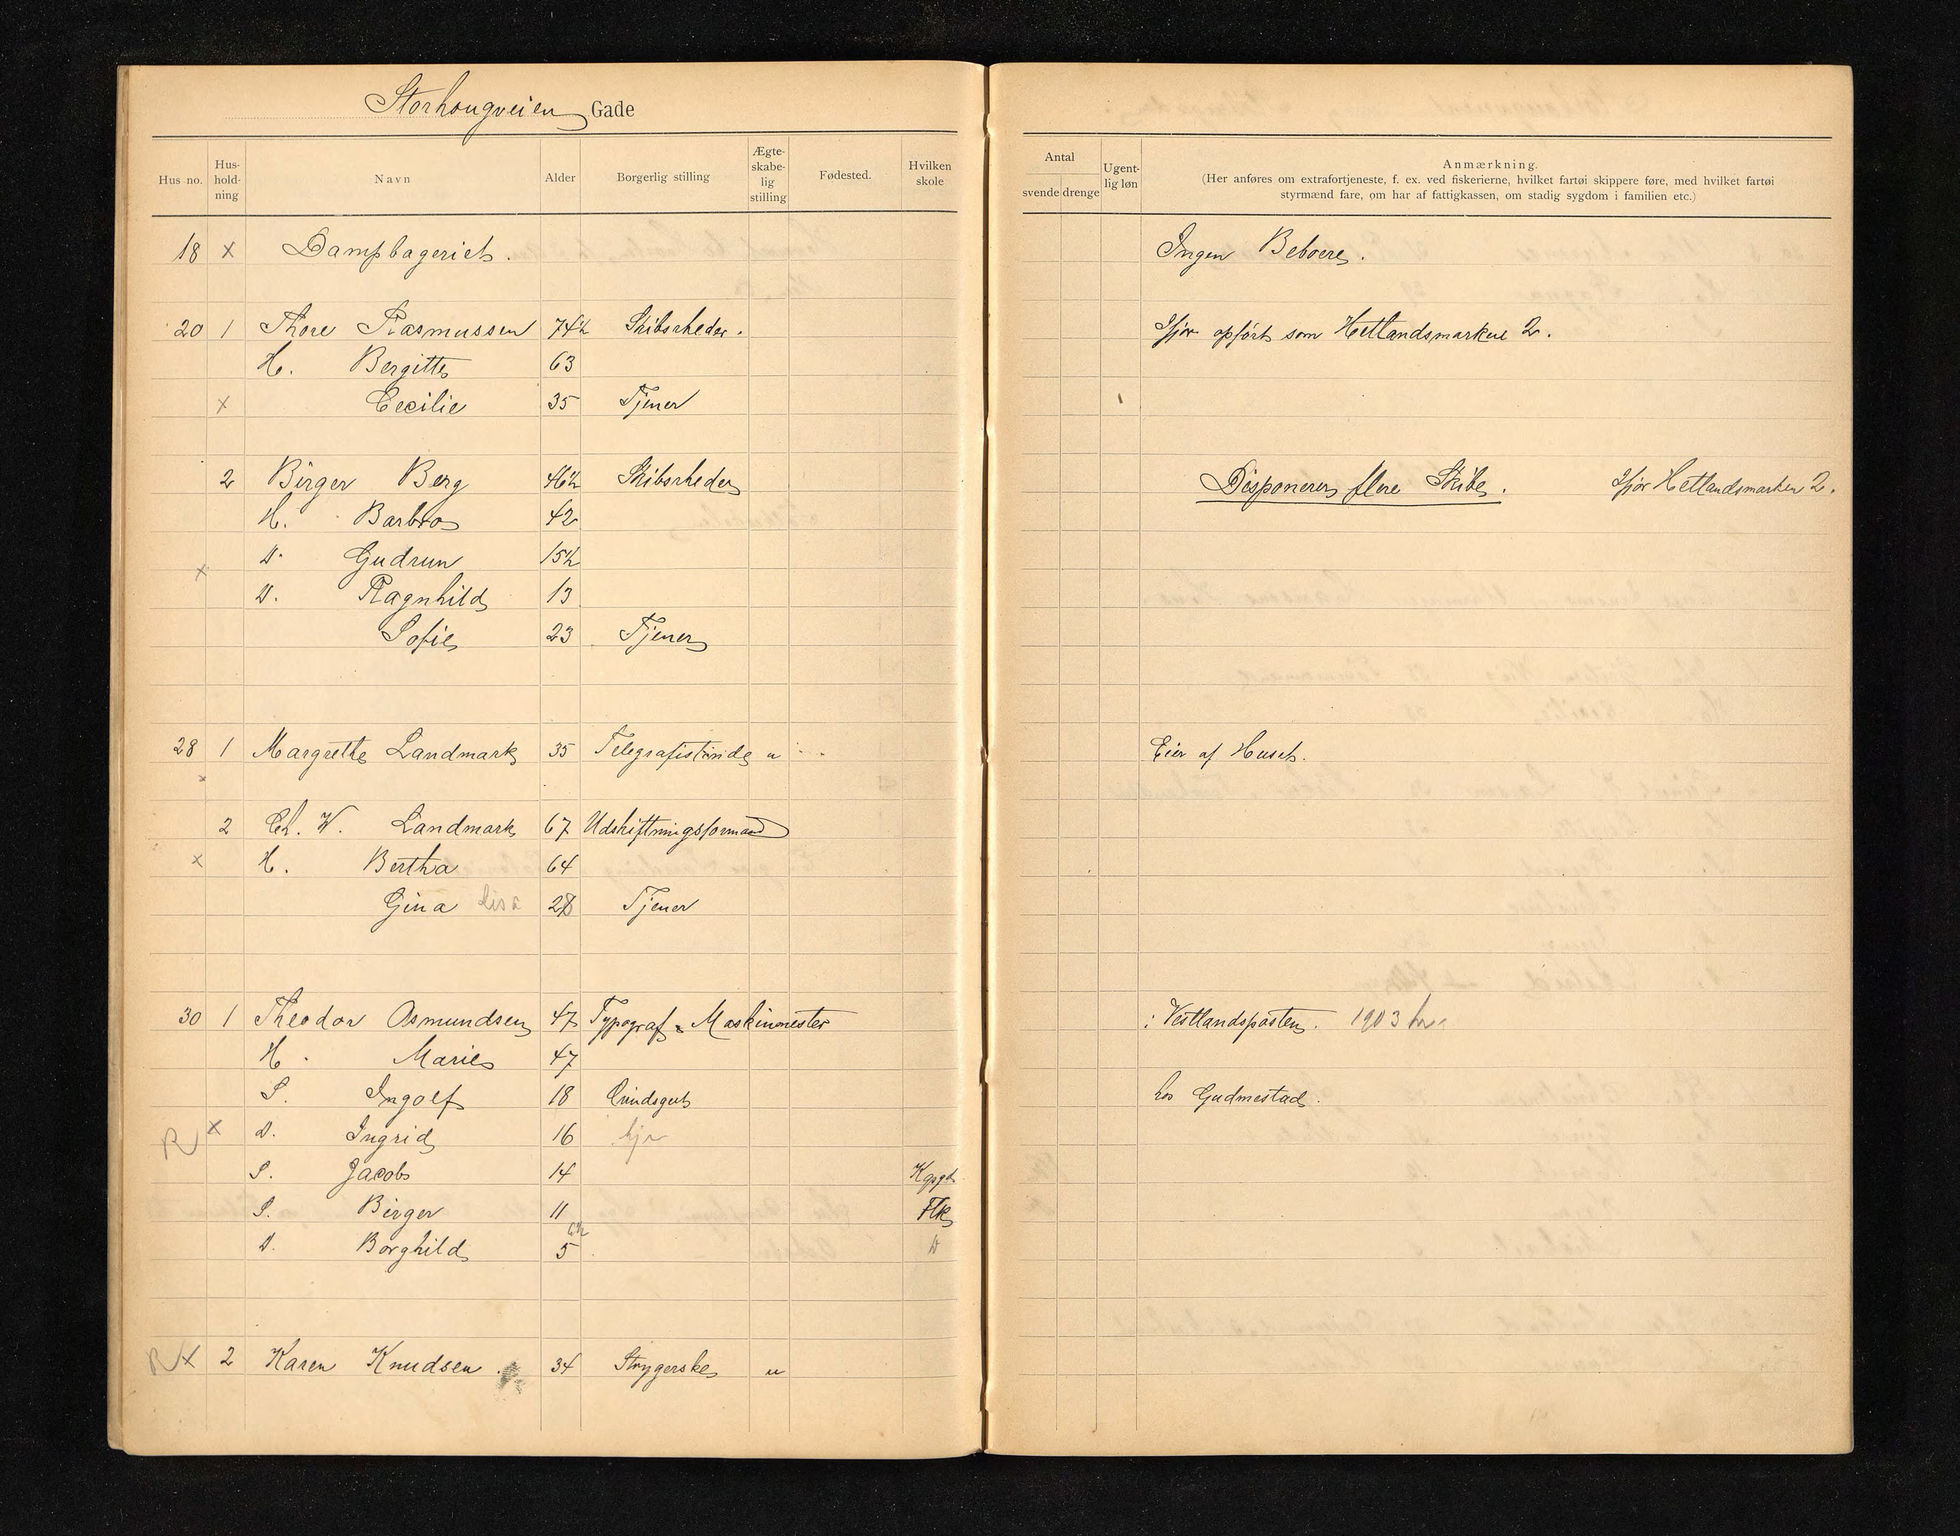 Storhougveien Gade
Hus no. Hus-hold-ning Navn Alder Borgerlig stilling Ægte-skabe-lig stilling Fødested. Hvilken skole
Antal svende drenge Ugent-lig løn Anmærkning.
(Her anføres om extrafortjeneste, f. ex. ved fiskerierne, hvilket fartøi skippere føre, med hvilket fartøi
styrmænd fare, om har af fattigkassen, om stadig sygdom i familien etc.)
18 x Dampbageriet. Ingen Beboere.
20 1 Thore Rasmussen 74½ Skibsrheder. Ifjor opført som Hetlandsmarken 2.
H. Bergitte 63
x Cecilie 35 Tjener
2 Birger Berg 46½ Skibsrheder Disponerer flere Skibe. Ifjor Hetlandsmarken 2.
H. Barbro 42
D. Gudrun 15½
x
D. Ragnhild 13
Sofie 23 Tjener
28 1 Margrethe Landmark 35 Telegrafistinde u Eier af Huset.
x
2 Ch. W. Landmark 67 Udskiftningsformand
x H. Bertha 64
Gina Lisa 28 Tjener
30 1 Theodor Osmundsen 47 Typograf & Maskinmester i Vestlandsposten. 1903
H. Marie 47
S. Ingolf 18 hos Gudmestad.
R x D. Ingrid 16 hjr
S. Jacob 14 Kgsgt
S. Birger 11 Flk
6½
D. Borghild 5 D
R x 2 Karen Knudsen. 34 Strygerske u